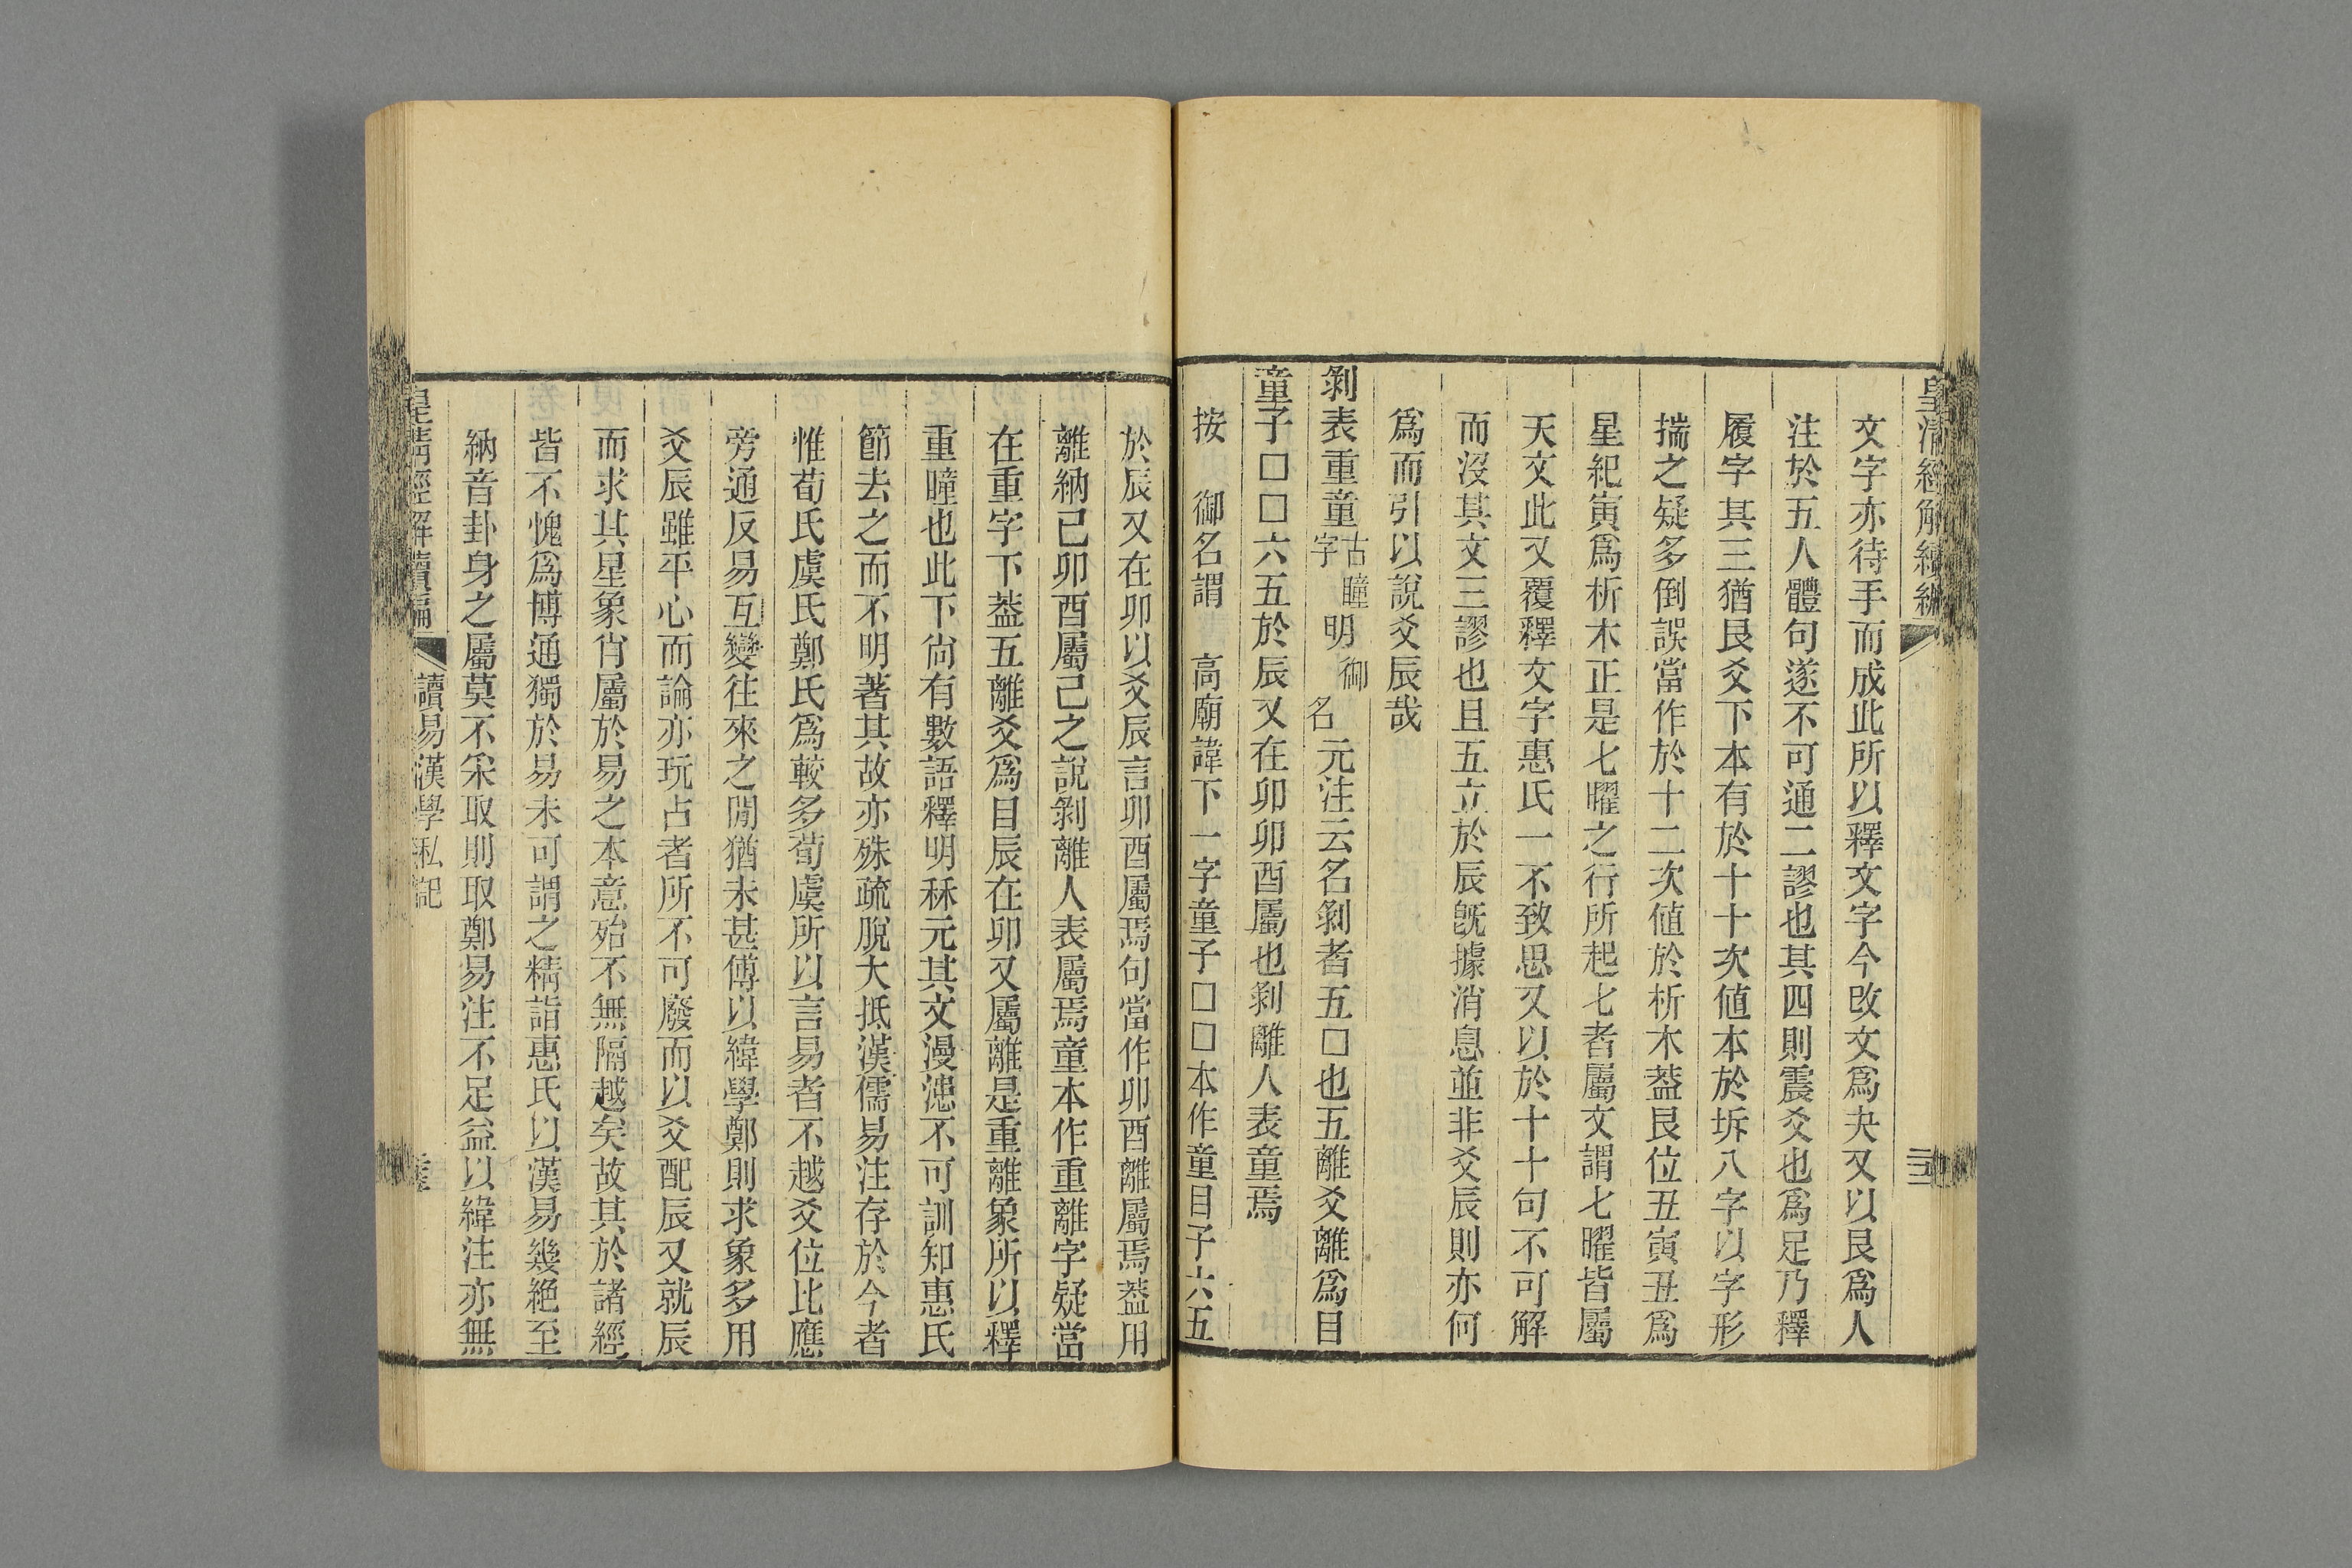 皇清經解續編
文字亦待手而成此所以釋文字今改文爲夬又以艮爲人
注於五人體句遂不可通二謬也其四則震爻也爲足乃釋
履字其三猶艮爻下本有於十十次値本於坼八字以字形
揣之疑多倒誤當作於十二次値於析木葢艮位丑寅丑爲
星紀寅爲析木正是七曜之行所起七者屬文謂七曜皆屬
天文此又覆釋文字惠氏一不致思又以於十十句不可解
而沒其文三謬也且五立於辰旣據消息並非爻辰則亦何
爲而引以說爻辰哉
剝表重童古瞳字明御名元注云名剝者五□也五離爻離爲目
童子□□六五於辰又在卯卯酉屬也剝離人表童焉
按　御名謂　高廟諱下一字童子□□本作童目子六五
於辰又在卯以爻辰言卯酉屬焉句當作卯酉離屬焉葢用
離納己卯酉屬己之說剝離人表屬焉童本作重離字疑當
在重字下葢五離爻爲目辰在卯又屬離是重離象所以釋
重瞳也此下尙有數語釋明秝元其文漫漶不可訓知惠氏
節去之而不明著其故亦殊疏脫大抵漢儒易注存於今者
惟荀氏虞氏鄭氏爲較多荀虞所以言易者不越爻位比應
旁通反易互變往來之閒猶未甚傅以緯學鄭則求象多用
爻辰雖平心而論亦玩占者所不可廢而以爻配辰又就辰
而求其星象肖屬於易之本意殆不無隔越矣故其於諸經
皆不愧爲博通獨於易未可謂之精詣惠氏以漢易幾絕至
納音卦身之屬莫不罙取則取鄭易注不足益以緯注亦無
皇淸經解續編
讀易漢學私記